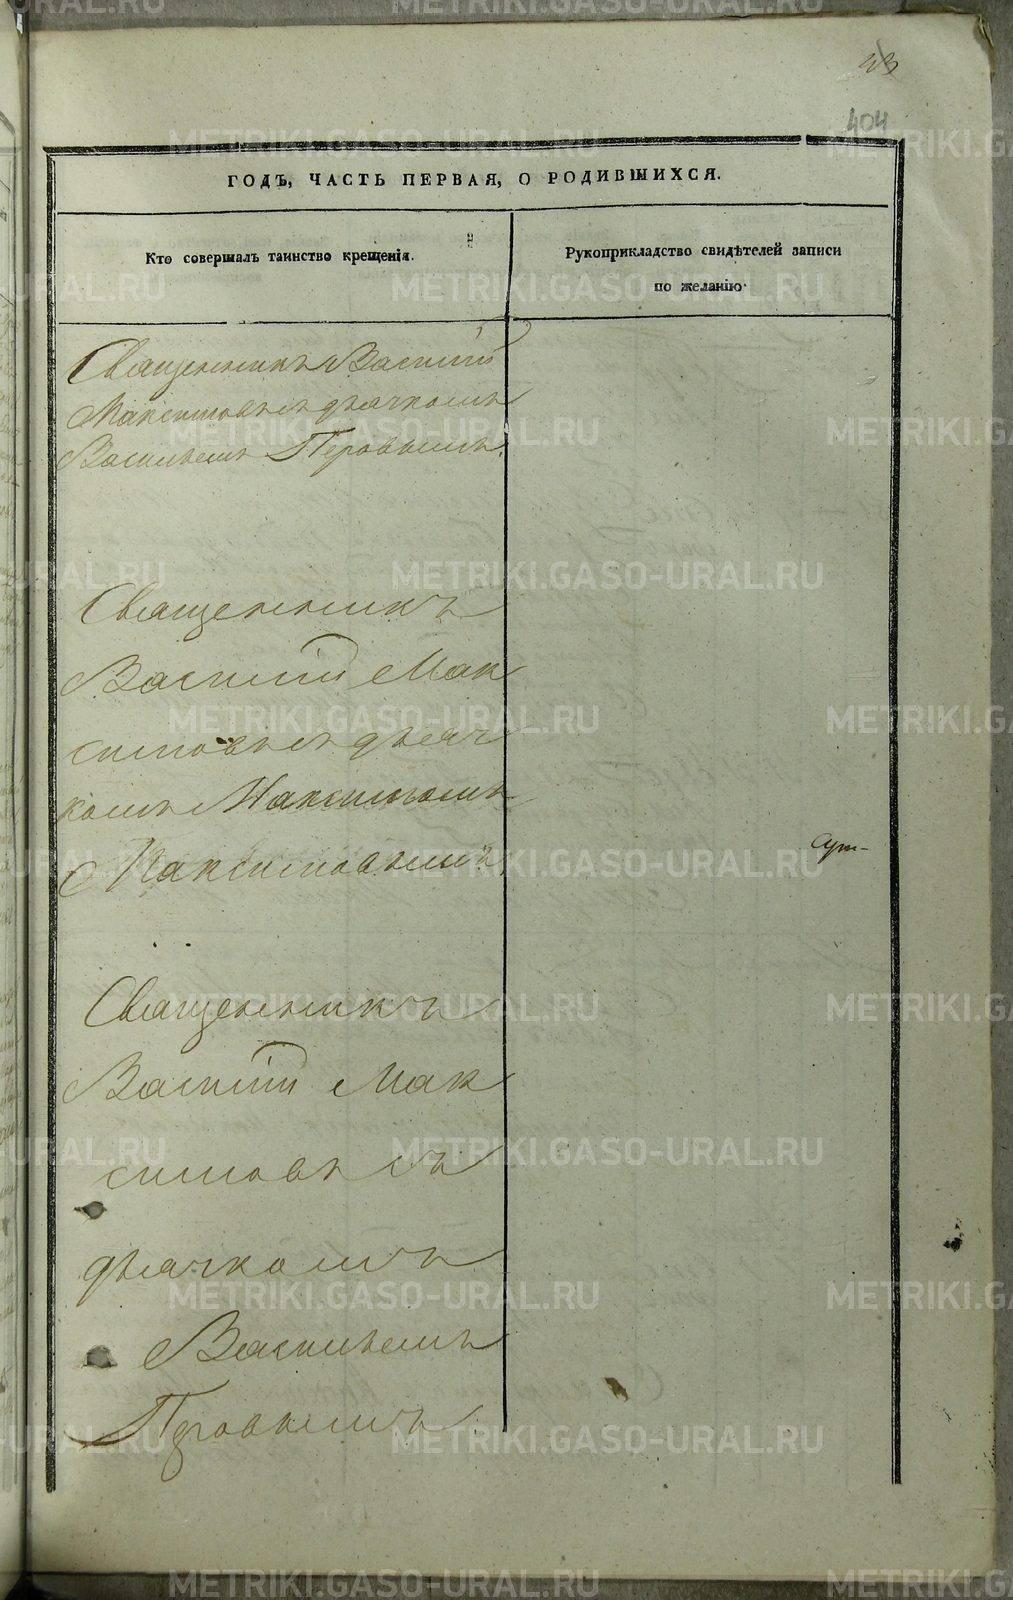 404
ГОДЪ, ЧАСТЬ ПЕРВАЯ, О РОДИВШИХСЯ.
Кто совершалъ таинство крещенія.
Рукоприкладство свидѣтелей записи
по желанію
Священникъ Василій
Максимовъ съ дьячкомъ
Васильемъ Перовымъ.
Священникъ
Василій Мак
симовъ съ дьяч
комъ Максимомъ
Максимовымъ.
Священникъ
Василій Мак
симовъ съ
дьячкомъ
Васильемъ
Перовымъ.
METRIKI.GASO-URAL.RU